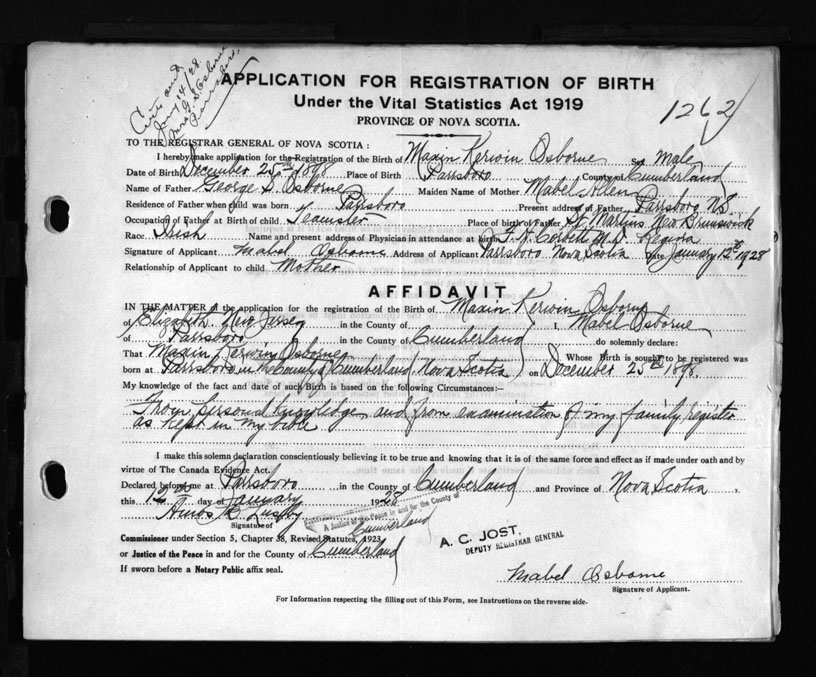 Cert and
Jany 14/28
Mrs G. S. Osborne
Parrsboro
APPLICATION FOR REGISTRATION OF BIRTH
Under the Vital Statistics Act 1919
1262
PROVINCE OF NOVA SCOTIA.
TO THE REGISTRAR GENERAL OF NOVA SCOTIA :
I hereby make application for the Registration of the Birth of Maxin Kerwin Osborne Sex Male
Date of Birth December 25th 1898 Place of Birth Parrsboro County of Cumberland
Name of Father George S. Osborne Maiden Name of Mother Mabel Allen
Residence of Father when child was born Parrsboro Present address of Father Parrsboro NS
Occupation of Father at Birth of child Teamster Place of birth of Father St. Martins New Brunswick
Race Irish Name and present address of Physician in attendance at birth F. A. Corbett M.D. Regina
Signature of Applicant Mabel Osborne Address of Applicant Parrsboro Nova Scotia Date January 12th 1928
Relationship of Applicant to child Mother
AFFIDAVIT
IN THE MATTER of the application for the registration of the Birth of Maxin Kerwin Osborne
of Elizabeth New Jersey in the County of I, Mabel Osborne
of Parrsboro in the County of Cumberland do solemnly declare:
That Maxin Kerwin Osborne Whose Birth is sought to be registered was
born at Parrsboro in the County of Cumberland Nova Scotia on December 25th 1898.
My knowledge of the fact and date of such Birth is based on the following Circumstances:—
From personal knowledge and from examination of my family register
as kept in my bible
I make this solemn declaration conscientiously believing it to be true and knowing that it is of the same force and effect as if made under oath and by
virtue of The Canada Evidence Act.
Declared before me at Parrsboro in the County of Cumberland and Province of Nova Scotia ,
this 12th day of January 1928
Amos B Lusby
A Justice of the Peace in and for the County of
Cumberland
Signature of
Commissioner under Section 5, Chapter 38, Revised Statutes, 1923
or Justice of the Peace in and for the County of Cumberland
If sworn before a Notary Public affix seal.
A. C. JOST,
DEPUTY REGISTRAR GENERAL
Mabel Osborne
Signature of Applicant.
For Information respecting the filling out of this Form, see Instructions on the reverse side.